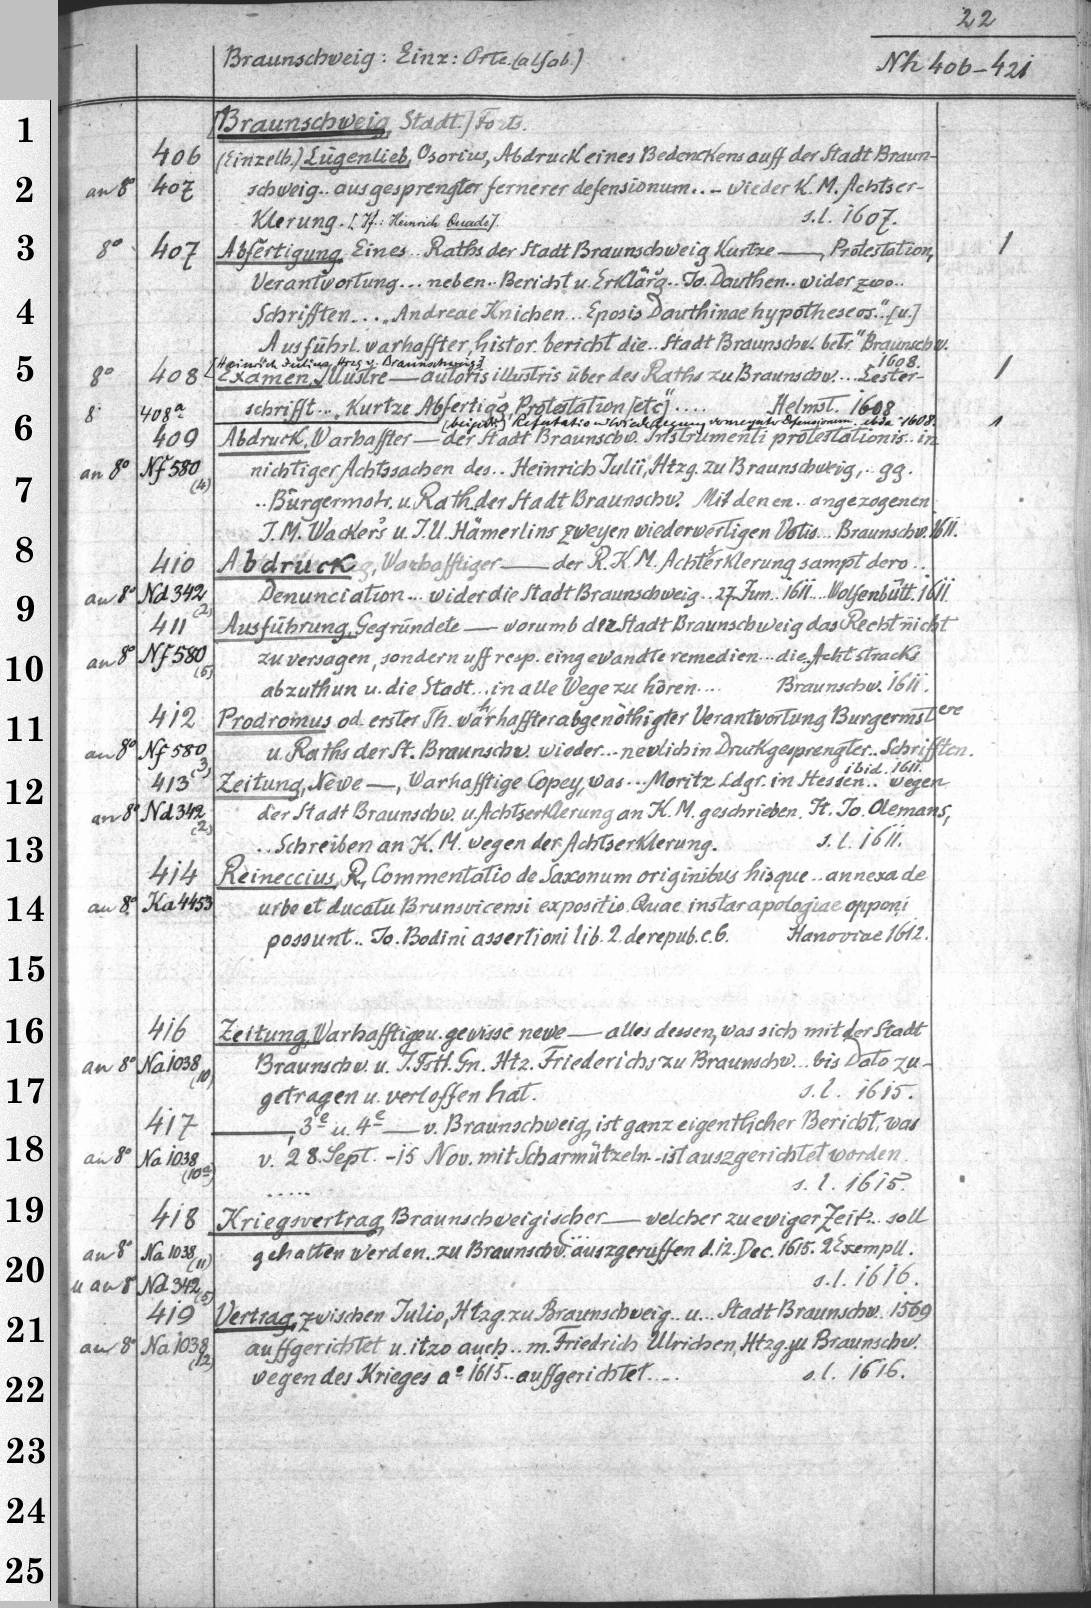 22
Braunschweig: Einz: Orte. (alfab.)
Nh 406-421
[Braunschweig, Stadt.] Forts.
406 (Einzelb.) Lügenlieb, Osorius, Abdruck eines Bedenckens auff der Stadt Braun-
an 8° 407 schweig.. ausgesprengter fernerer defensionum.. - wieder K. M. Achtser-
Klerung. [Vf.: Heinrich Quade]. s.l. 1607.
8° 407 Abfertigung, Eines.. Raths der Stadt Braunschweig Kurtze —, Protestation, 1
Verantwortung... neben.. Bericht u. Erklärg.. Jo. Dauthen.. wider zwo..
Schrifften.... „Andreae Knichen.. Eposis Dauthinae hypotheseos.." [u.]
„Ausführl. warhaffter, histor. bericht die.. Stadt Braunschw. betr." Braunschw.
[Heinrich Julius, Hrzg v. Braunschweig] 1608.
8° 408 Examen, Illustre — autoris illustris über des Raths zu Braunschw... Lester- 1
8° 408a schrifft... „Kurtze Abfertigg, Protestation [etc]".... Helmst. 1608
(beigdr.) Refutatio u. Wiederlegung ebda 1608. 1
409 Abdruck, Warhaffter — der Stadt Braunschw. Instrumenti protestationis.. in
an 8° Nf 580 (4) nichtiger Achtssachen des.. Heinrich Julii, Htzg. zu Braunschweig,.. gg.
.. Bürgermstr. u. Rath der Stadt Braunschw. Mit denen.. angezogenen
J. M. Wackers u. J. U. Hämerlins zweyen wiederwertigen Votis... Braunschw. 1611.
410 Abdruck, Warhafftiger — der R. K. M. Achtserklerung sampt dero..
an 8° Nd 342 (2) Denunciation... wider die Stadt Braunschweig.. 27. Jun. 1611... Wolfenbütt. 1611.
411 Ausführung, Gegründete — worumb der Stadt Braunschweig das Recht nicht
an 8° Nf 580 (5) zu versagen, sondern uff resp. eingewandte remedien... die Acht stracks
abzuthun u. die Stadt... in alle Wege zu hören.... Braunschw. 1611.
412 Prodromus od. erster Th. warhaffter abgenöthigter Verantwortung Burgermstere
an 8° Nf 580 (3) u. Raths der St. Braunschw. wieder... newlich in Druck gesprengter.. Schrifften.
ibid. 1611.
413 Zeitung, Newe —, Warhafftige Copey, was... Moritz Ldgr. in Hessen.. wegen
an 8° Nd 342 (2) der Stadt Braunschw. u. Achtserklerung an K. M. geschrieben. It. Jo. Olemans,
.. Schreiben an K. M. wegen der Achtserklerung. s.l. 1611.
414 Reineccius, R., Commentatio de Saxonum originibus hisque.. annexa de
an 8° Ka 4453 urbe et ducatu Brunsvicensi expositio. Quae instar apologiae opponi
possunt.. Jo. Bodini assertioni lib. 2. de repub. c. 6. Hanoviae 1612.
416 Zeitung, Warhafftige u. gewisse newe — alles dessen, was sich mit der Stadt
an 8° Na 1038 (10) Braunschw. u. J. Fstl. Gn. Htz. Friederichs zu Braunschw... bis Dato zu-
getragen u. verloffen hat. s.l. 1615.
417 —, 3e u. 4e — v. Braunschweig, ist ganz eigentlicher Bericht, was
an 8° Na 1038 (10a) v. 28. Sept. - 15 Nov. mit Scharmützeln.. ist auszgerichtet worden.
..... s.l. 1615.
418 Kriegsvertrag, Braunschweigischer — welcher zu ewiger Zeit.. soll
an 8° Na 1038 (11) gehalten werden.. zu Braunschw. ... auszgeruffen d. 12. Dec. 1615. 2 Exempll.
u an 8° Nd 342 (5) s.l. 1616.
419 Vertrag, zwischen Julio, Htzg. zu Braunschweig.. u... Stadt Braunschw. 1569
an 8° Na 1038 (12) auffgerichtet u. itzo auch.. m. Friedrich Ulrichen, Htzg. zu Braunschw.
wegen des Krieges ao 1615.. auffgerichtet.... s.l. 1616.
1
2
3
4
5
6
7
8
9
10
11
12
13
14
15
16
17
18
19
20
21
22
23
24
25